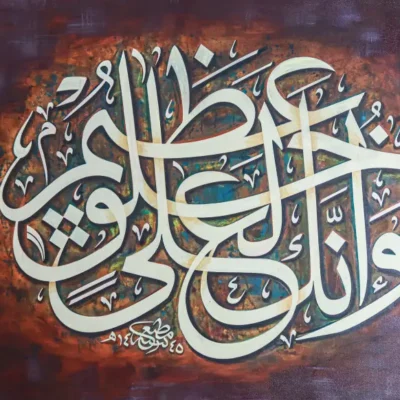 وَإنَّكَ لعلى خُلُقٍ عظيم